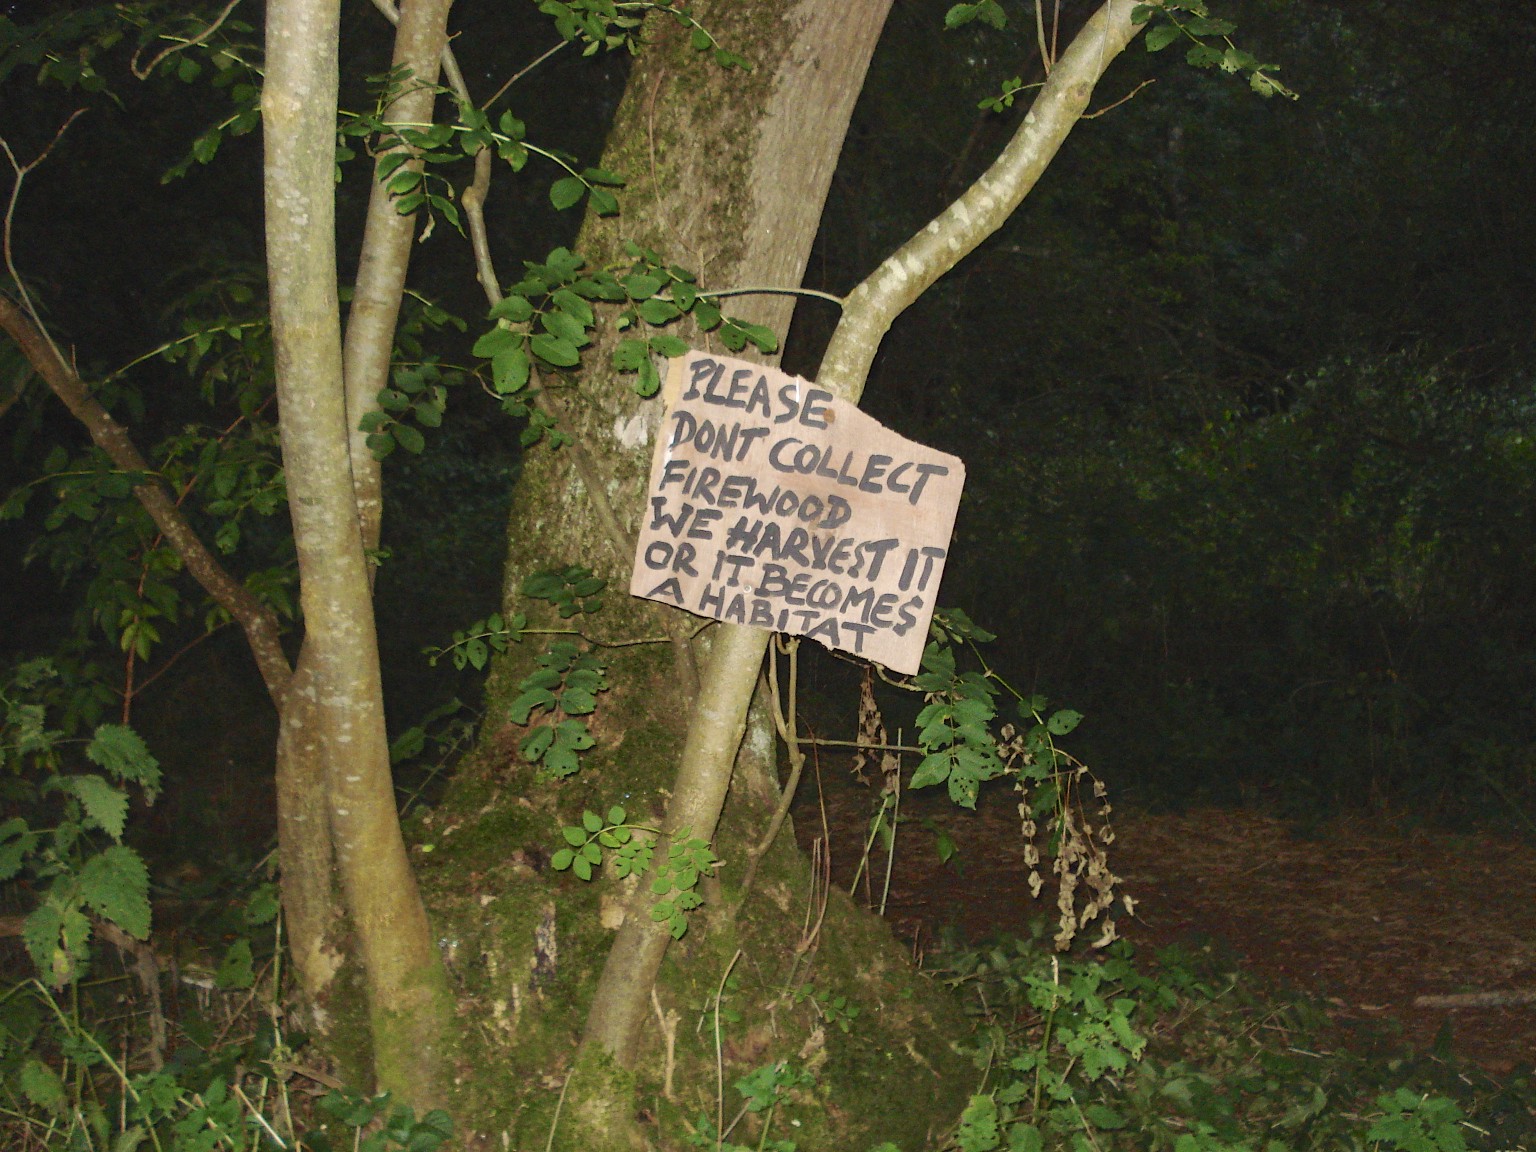 PLEASE
DONT COLLECT
FIREWOOD
WE HARVEST IT
OR IT BECOMES
A HABITAT